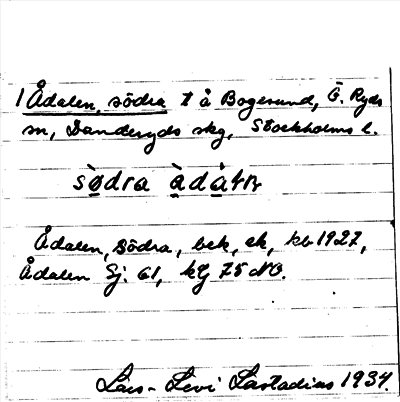 1 Ådalen, södra t å Bogesund, Ö. Ryds
sn, Danderyds skg, Stockholms l.
södra
Ådalen, Södra, bek, ek, kb 1927,
Ådalen Gj. 61, kbj 75 NO.
Lars-Levi Læstadius 1934.